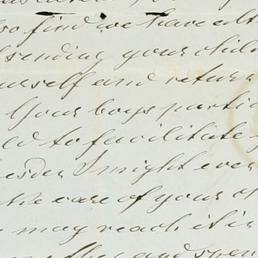 to find we have alt
sending your chil
urself and return
Your boys partic
ld to facilitate
esden I might ever
the care of your o
may reach it in
and spen